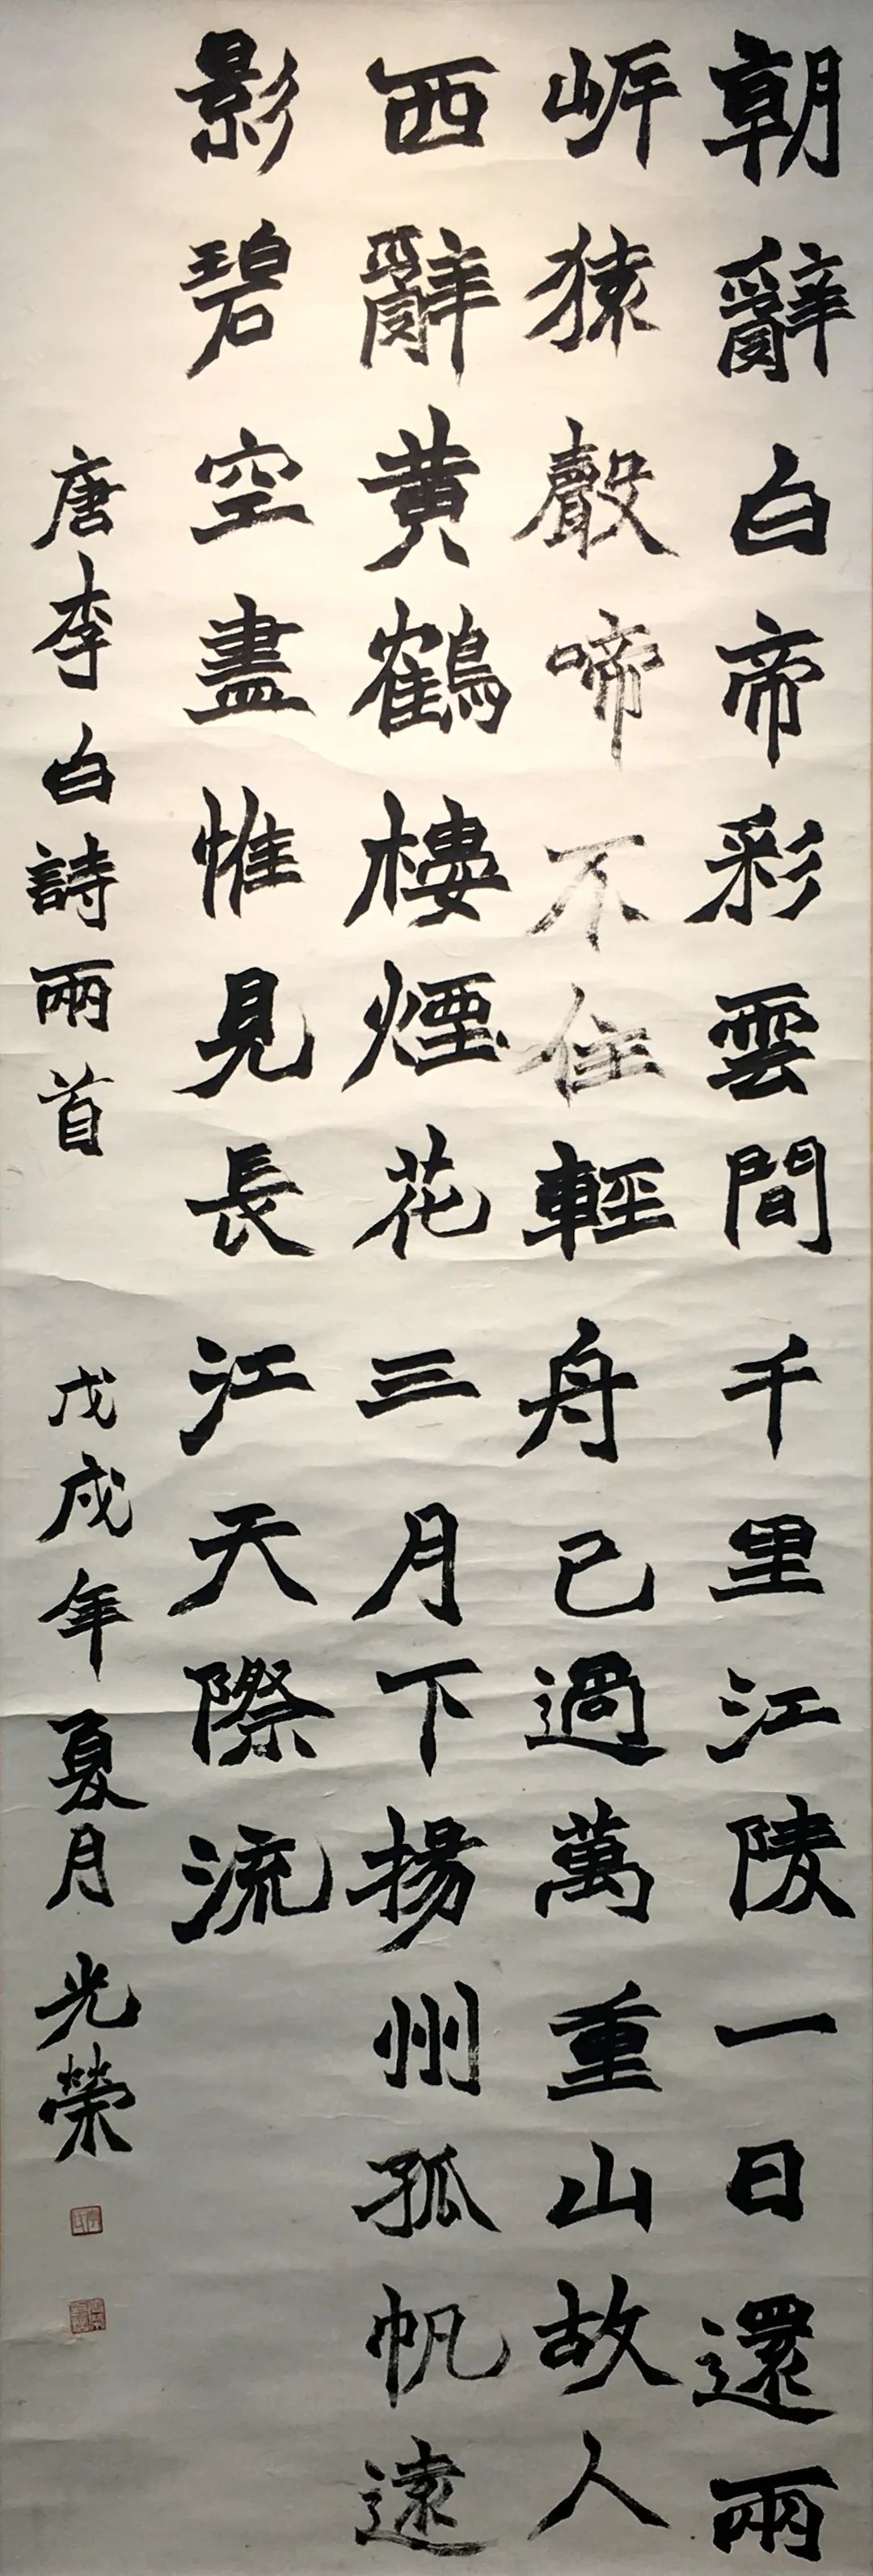 朝辭白帝彩雲間千里江陵一日還兩
岍猿聲啼不住輕舟已過萬重山故人
西辭黃鶴樓煙花三月下揚州孤帆遠
影碧空盡惟見長江天際流
唐李白詩兩首 戊戌年夏月 光榮